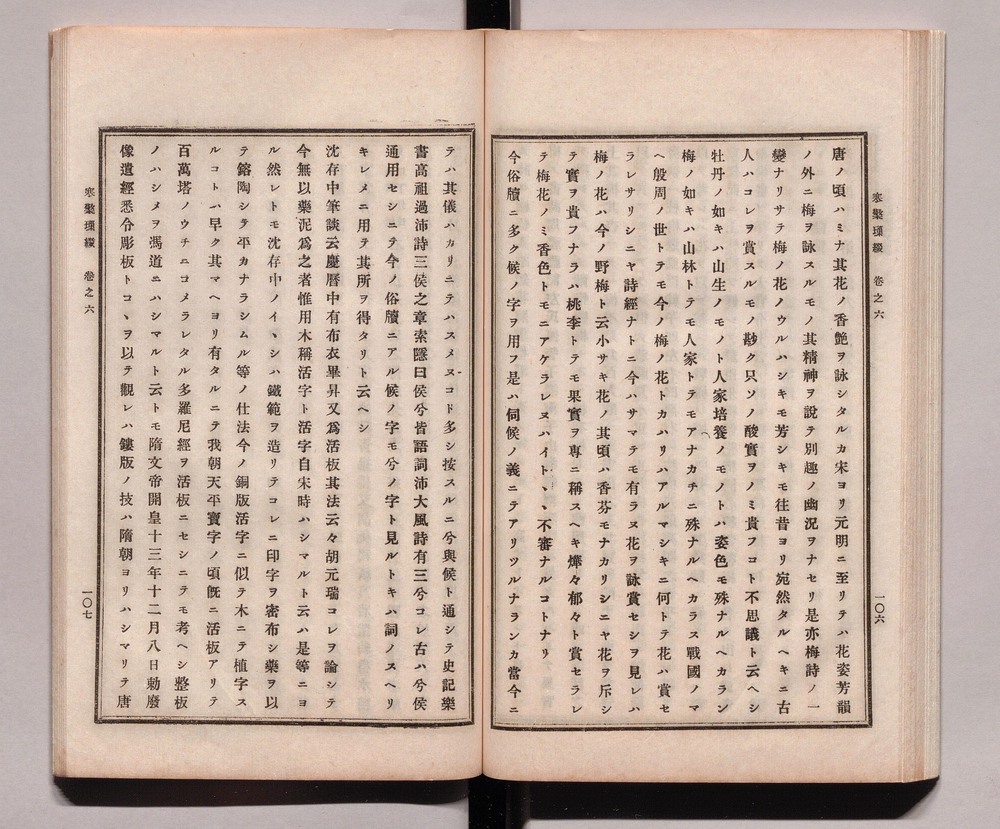 寒檠璅綴　卷之六
唐ノ頃ハミナ其花ノ香艶ヲ詠シタルカ宋ヨリ元明ニ至リテハ花姿芳韻
ノ外ニ梅ヲ詠スルモノ其精神ヲ說テ別趣ノ幽況ヲナセリ是亦梅詩ノ一
變ナリサテ梅ノ花ノウルハシキモ芳シキモ往昔ヨリ宛然タルヘキニ古
人ハコレヲ賞スルモノ尠ク只ソノ酸實ヲノミ貴フコト不思議ト云ヘシ
牡丹ノ如キハ山生ノモノト人家培養ノモノトハ姿色モ殊ナルヘカラン
梅ノ如キハ山林トテモ人家トテモアナカチニ殊ナルヘカラス戰國ノマ
ヘ殷周ノ世トテモ今ノ梅ノ花トカハリハアルマシキニ何トテ花ハ賞セ
ラレサリシニヤ詩經ナトニ今ハサマテモ有ラヌ花ヲ詠賞セシヲ見レハ
梅ノ花ハ今ノ野梅ト云小サキ花ノ其頃ハ香芬モナカリシニヤ花ヲ斥シ
テ實ヲ貴フナラハ桃李トテモ果實ヲ專ニ稱スヘキ燁々郁々ト賞セラレ
テ梅花ノミ香色トモニアケラレヌハイトヽ不審ナルコトナリ
今俗牘ニ多ク候ノ字ヲ用フ是ハ伺候ノ義ニテアリツルナランカ當今ニ
一〇六
寒檠璅綴　卷之六
テハ其儀ハカリニテハスメヌコト多シ按スルニ兮與候ト通シテ史記樂
書高祖過沛詩三侯之章索隱曰侯兮皆語詞沛大風詩有三兮コレ古ハ兮侯
通用セシニテ今ノ俗牘ニアル候ノ字モ兮ノ字ト見ルトキハ詞ノスヘリ
キレメニ用テ其所ヲ得タリト云ヘシ
沈存中筆談云慶曆中有布衣畢昇又爲活板其法云々胡元瑞コレヲ論シテ
今無以藥泥爲之者惟用木稱活字ト活字自宋時ハシマルト云ハ是等ニヨ
ル然レトモ沈存中ノイヽシハ鐵範ヲ造リテコレニ印字ヲ密布シ藥ヲ以
テ鎔陶シテ平カナラシムル等ノ仕法今ノ銅版活字ニ似テ木ニテ植字ス
ルコトハ早ク其マヘヨリ有タルニテ我朝天平寶字ノ頃旣ニ活板アリテ
百萬塔ノウチニコメラレタル多羅尼經ヲ活板ニセシニラモ考ヘシ整板
ノハシメヲ馮道ニハシマルト云トモ隋文帝開皇十三年十二月八日勅廢
像遺經悉令彫板トコヽヲ以テ觀レハ鏤版ノ技ハ隋朝ヨリハシマリテ唐
一〇七